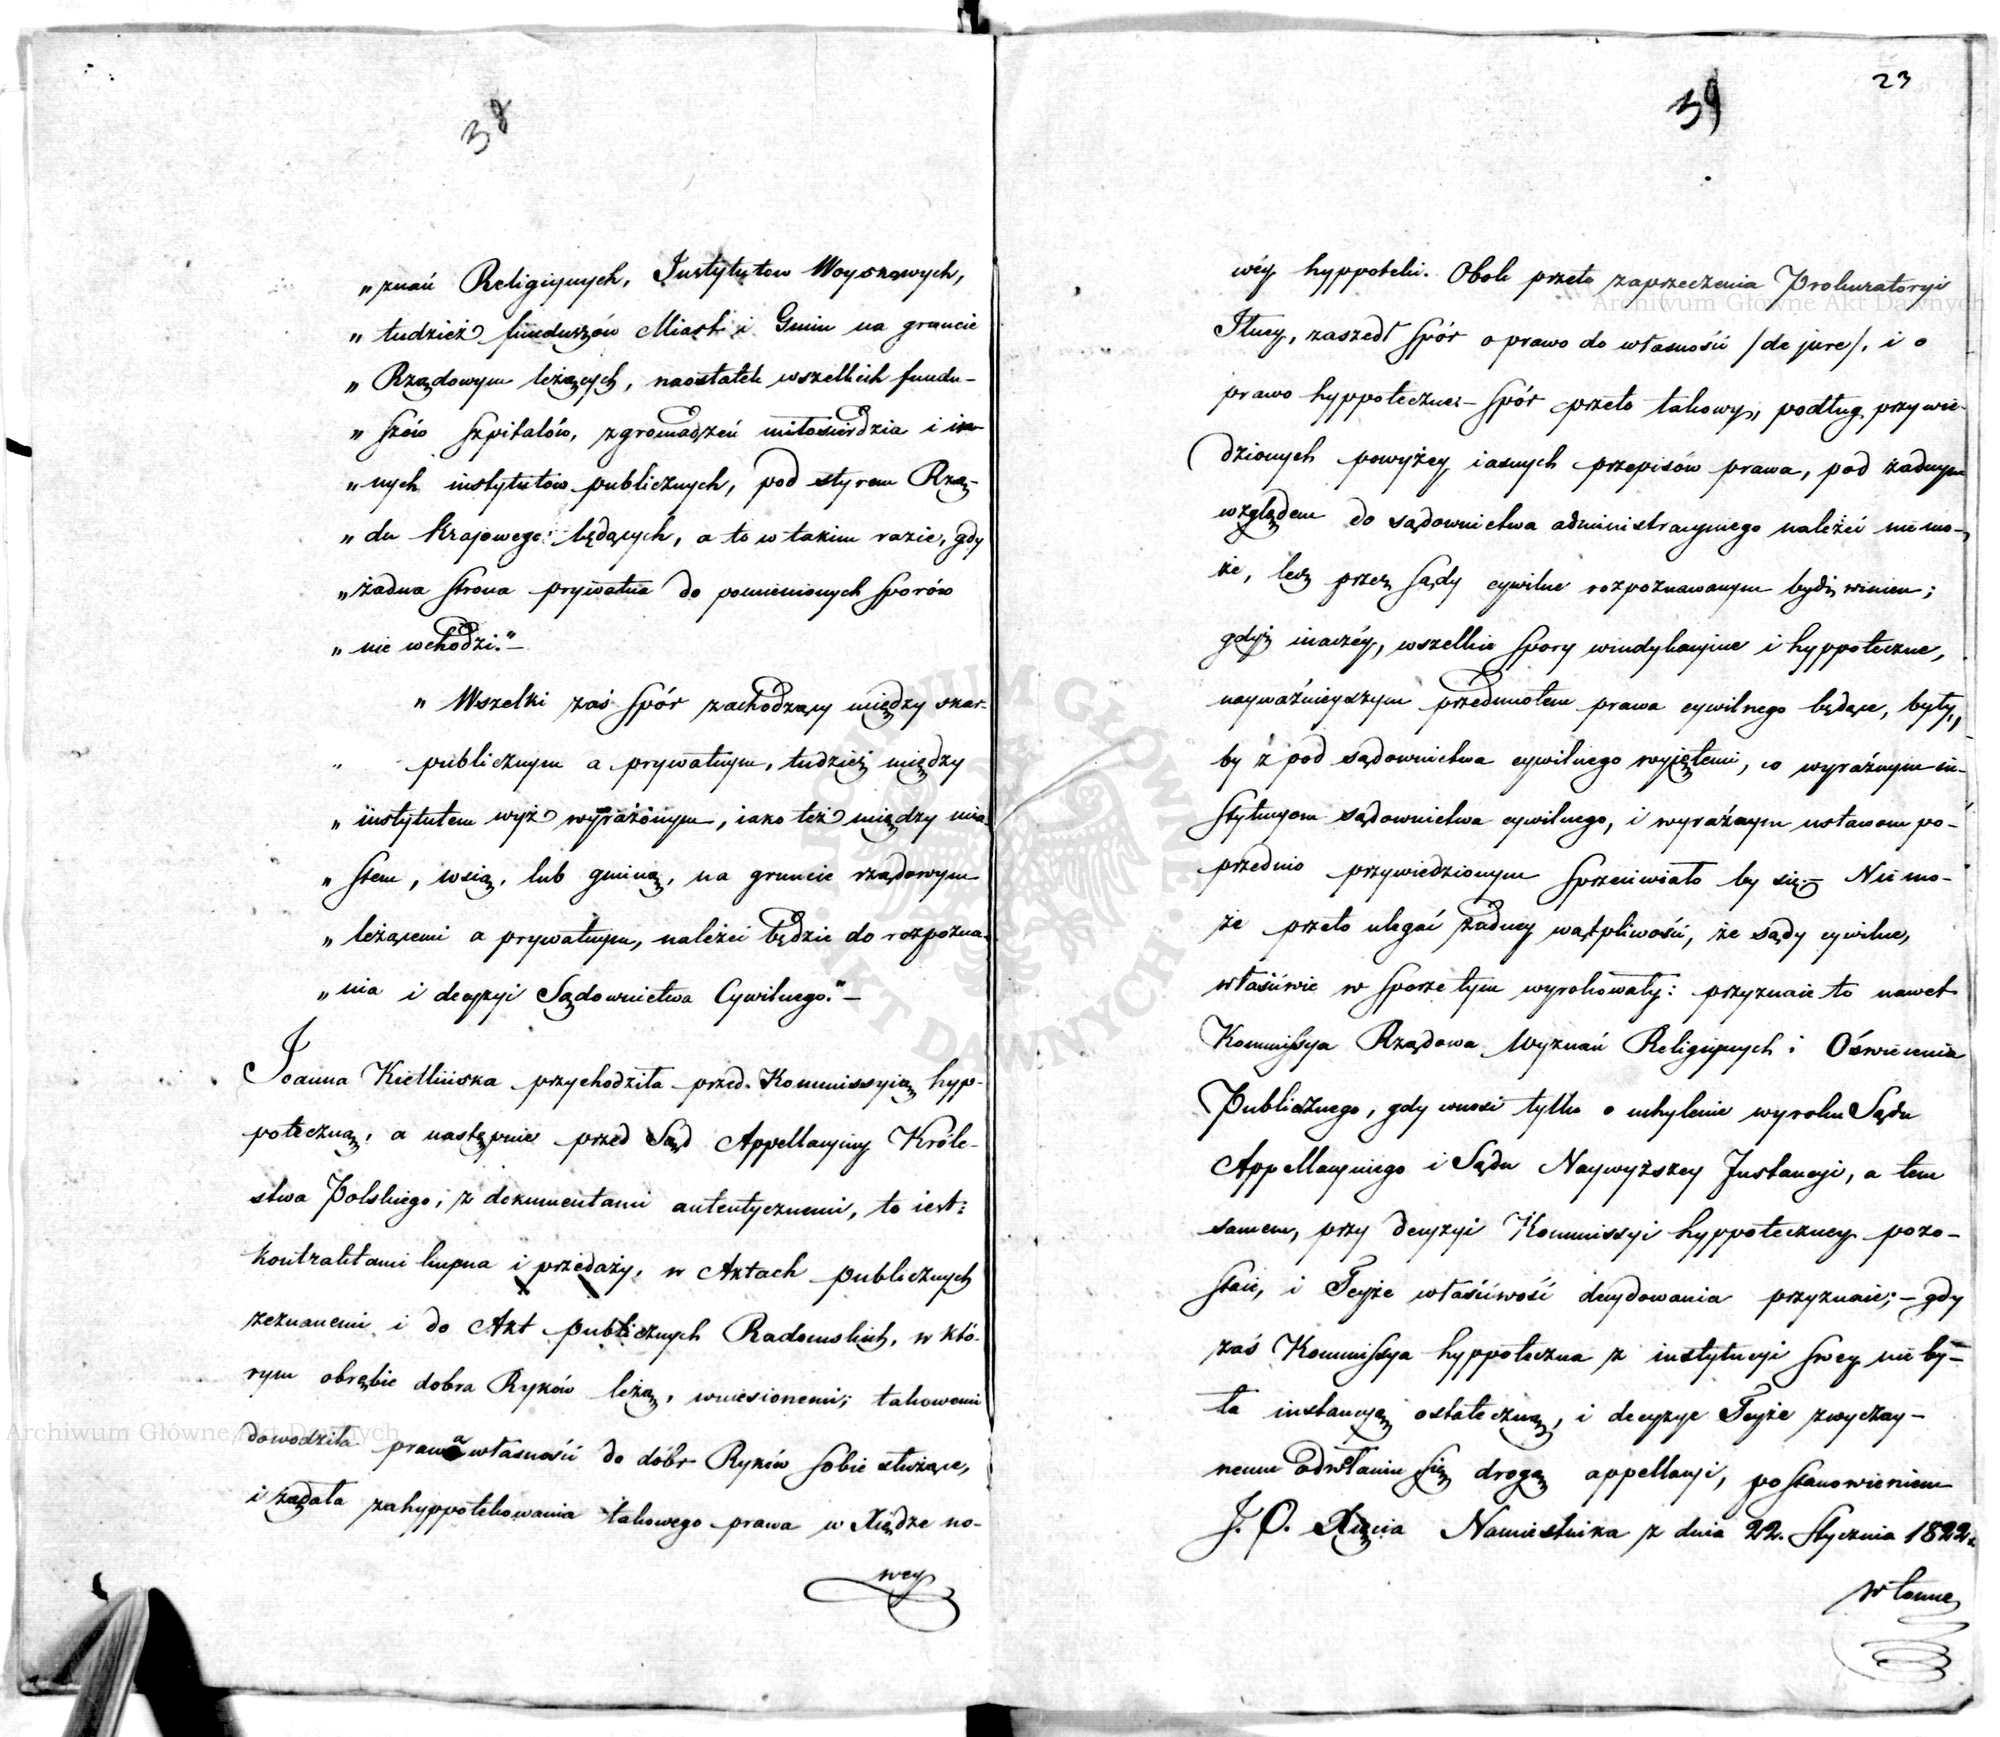 38
„znań Religiynych, Instytutow Woyskowych,
„tudzież funduszów Miast i Gmin na gruncie
„Rządowym leżących, naostatek wszelkich fundu-
„szów szpitalów, zgromadzeń miłosierdzia i in-
„nych instytutów publicznych, pod sterem Rzą-
„du Krajowego będących, a to w takim razie, gdy
„żadna strona prywatna do pomienionych sporów
„nie wchodzi."—
„Wszelki zaś spór zachodzący między skar-
„publicznym a prywatnym, tudzież między
„instytutem wyż wyrażonym, iako też między mia-
„stem, wsią, lub gminą, na gruncie rządowym
„leżącemi a prywatnym, należeć będzie do rozpozna-
„nia i decyzyi Sądownictwa Cywilnego."—
Joanna Kietlińska przychodziła przed Kommissyią hyp-
poteczną, a następnie przed Sąd Appellacyiny Króle-
stwa Polskiego, z dokumentami autentycznemi, to iest:
kontraktami kupna i przedaży, w Aktach publicznych
zeznanemi i do Akt publicznych Radomskich, w któ-
rym obrębie dobra Ryków leżą, wniesionemi; takowemi
dowodziła prawa własności do dóbr Ryków sobie służące,
i żądała zahyppotekowania takowego prawa w Xiędze no-
wey
39
23
wéy hyppoteki. Obok przeto zaprzeczenia Prokuratoryi
Jlney, zaszedł spór o prawo do własności /de jure/, i o
prawo hyppoteczne.— Spór przeto takowy, podług przywie-
dzionych powyżey iasnych przepisów prawa, pod żadnym
względem do sądownictwa administracyinego należéć nie mo-
że, lecz przez Sądy cywilne rozpoznawanym bydź winien;
gdyż inaczéy, wszelkie spory windykacyine i hyppoteczne,
nayważnieyszym przedmiotem prawa cywilnego będące, były
by z pod sądownictwa cywilnego wyjętemi, co wyraźnym in-
stytucyom sądownictwa cywilnego, i wyraźnym ustawom po-
przednio przywiedzionym sprzeciwiało by się.— Nie mo-
że przeto ulegać żadney wątpliwości, że sądy cywilne,
właściwie w sporze tym wyrokowały: przyznaie to nawet
Kommissya Rządowa Wyznań Religiynych i Oświecenia
Publicznego, gdy wnosi tylko o uchylenie wyroku Sądu
Appellacyinego i Sądu Naywyższey Instancyi, a tem
samem, przy decyzyi Kommissyi hyppoteczney pozo-
staie, i Teyże właściwość decydowania przyznaie;— gdy
zaś Kommissya hyppoteczna z instytucyi swey nie by-
ła instancyą ostateczną, i decyzye Teyże zwyczay-
nemu odwołaniu się drogą appellacyi, postanowieniem
J. O. Xięcia Namiestnika z dnia 22. Stycznia 1822 r.